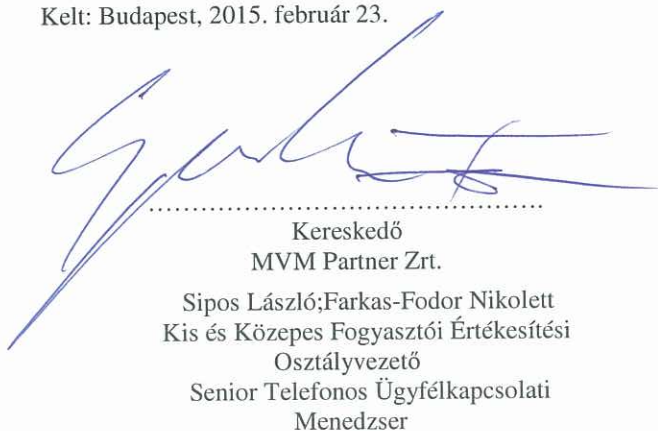 Kelt: Budapest, 2015. február 23.
................................................
Kereskedő
MVM Partner Zrt.
Sipos László;Farkas-Fodor Nikolett
Kis és Közepes Fogyasztói Értékesítési
Osztályvezető
Senior Telefonos Ügyfélkapcsolati
Menedzser